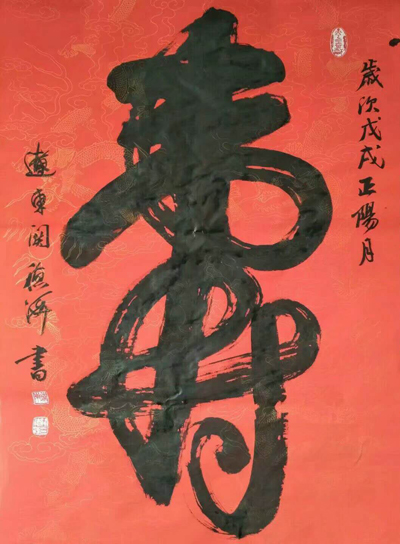 歲次戊戌正陽月
壽
遼東関德濟書